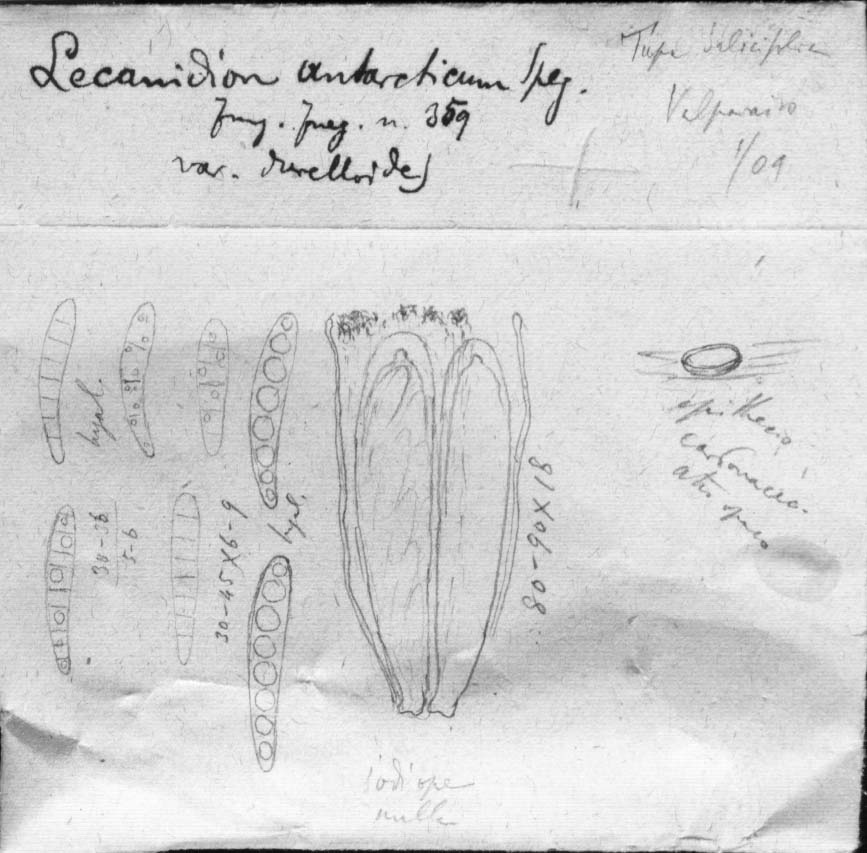 Lecanidion antarcticum Speg.
Fung. Fueg. n. 359
var. durelloides
Tupa salicifolia
Valparaiso
1/09
hyal.
30-36
5-6
30-45X6-9
hyal.
80-90X18
epithecio
carbonaceo-
atro opaco
iodi ope
nulla